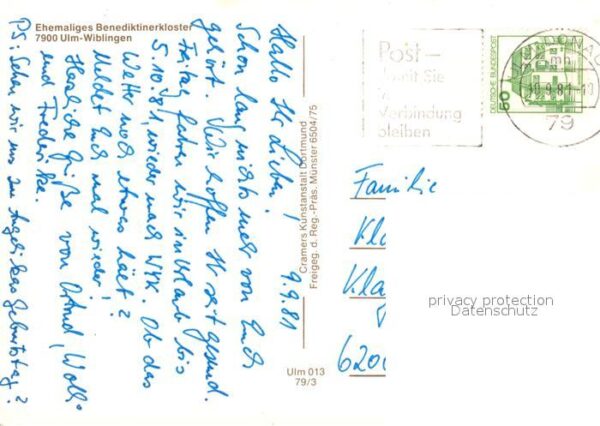 Ehemaliges Benediktinerkloster
7900 Ulm-Wiblingen
9.9.81
Hallo Ihr Lieben!
Schon lang nichts mehr von Euch
gehört. Wir hoffen Ihr seit gesund.
Freitag fahren wir in Urlaub bis
5.10.81, wieder nach Wyk. Ob das
Wetter noch etwas hält?
Meldet Euch mal wieder!
Herzliche Grüße von Astrid, Wolf-
und Frederike.
PS: Sehen wir uns zu Angelikas Geburtstag?
Cramers Kunstanstalt Dortmund
Freigeg. d. Reg.-Präs. Münster 6504/75
Ulm 013
79/3
Post –
damit Sie
in
Verbindung
bleiben
DONAU
mh
-9.81-10
79
DEUTSCHE BUNDESPOST
50
Familie
Kla
Kla
620
privacy protection
Datenschutz